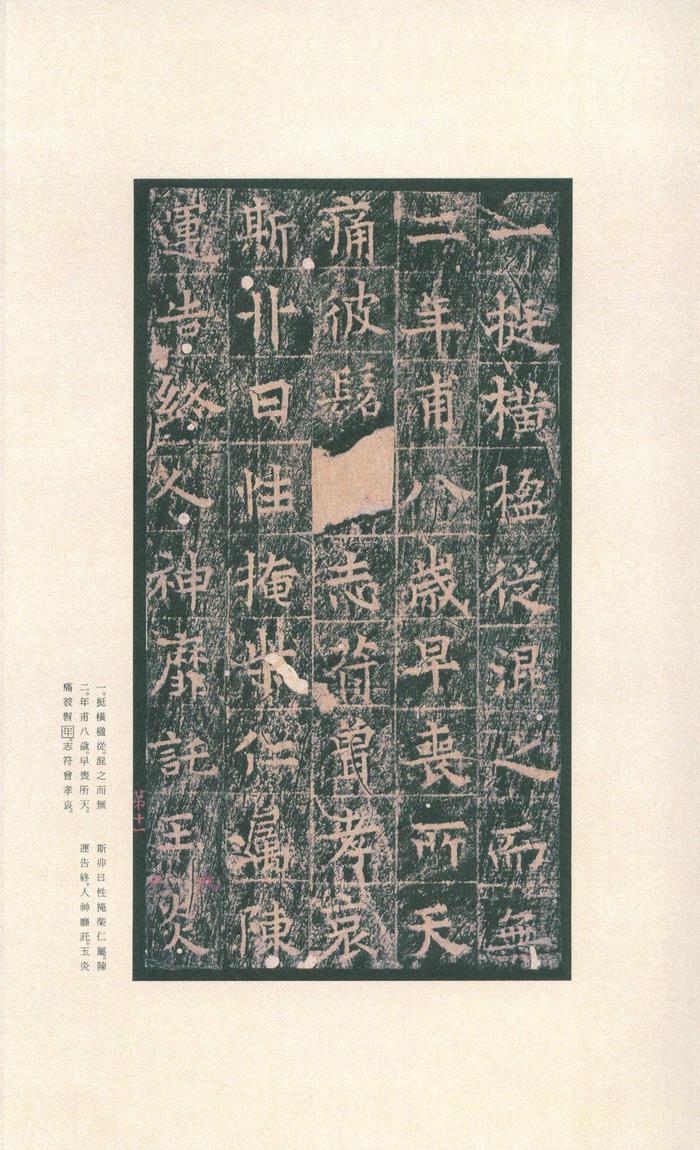 一挺橫楹從混之而無
二年甫八歲早喪所天
痛彼髫志符曾孝哀
斯卝曰性掩柴仁屬陳
運告終人神靡託玉炎
第十一
一。挺橫楹從。混之而無
二。年甫八歲。早喪所天。
痛彼髫年。志符曾孝。哀
斯卯曰性掩柴仁。屬陳
運告終。人神靡託。玉炎